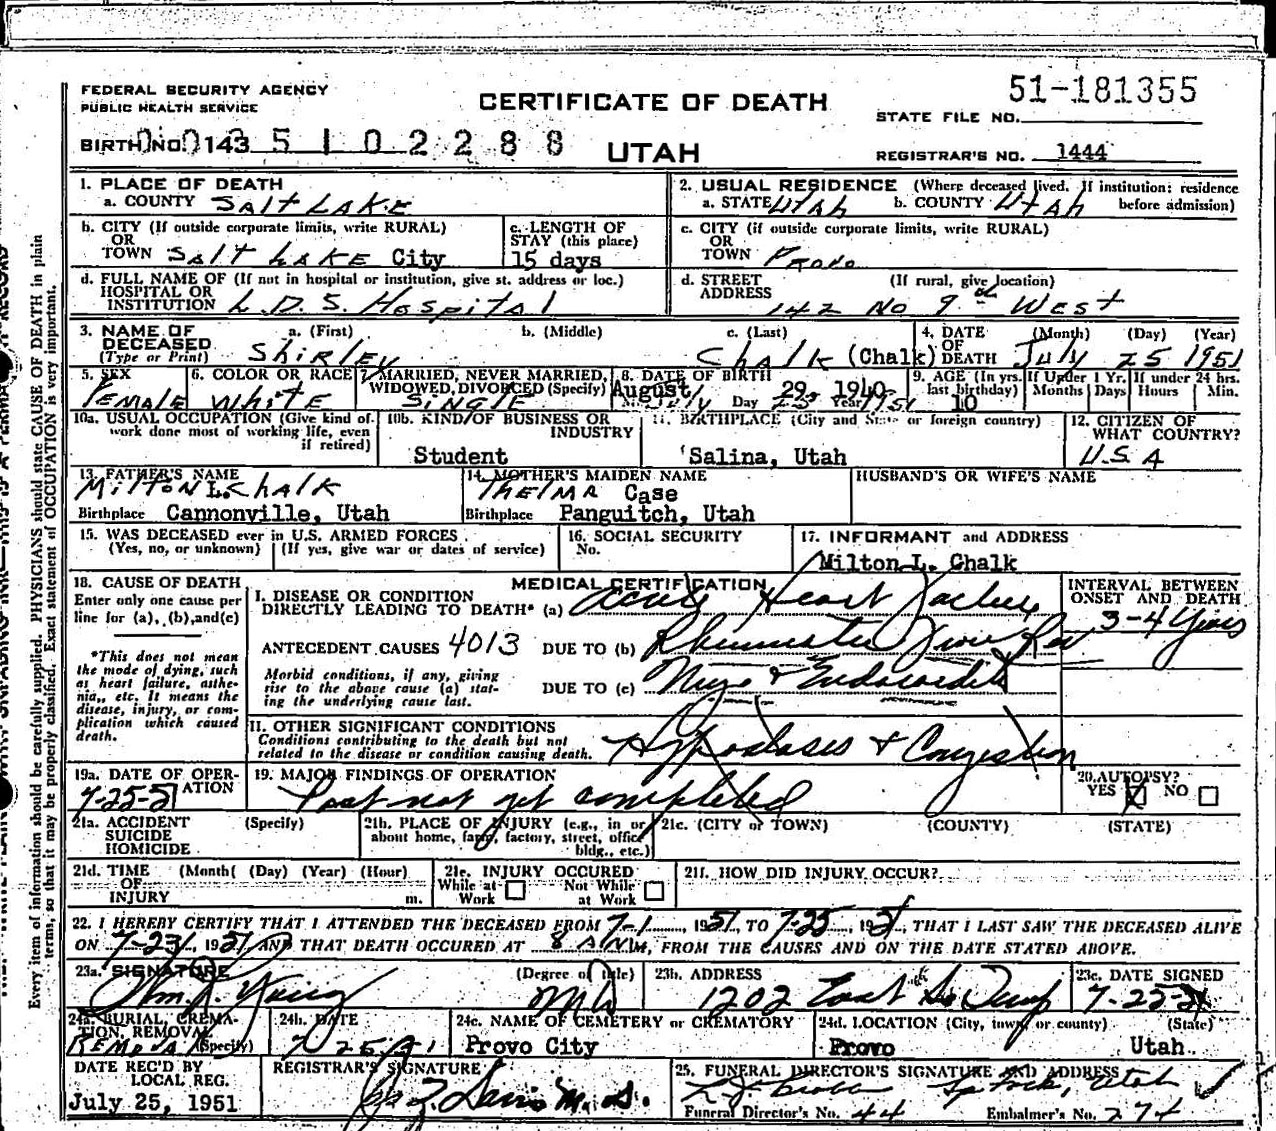 51-181355
FEDERAL SECURITY AGENCY
PUBLIC HEALTH SERVICE
CERTIFICATE OF DEATH
STATE FILE NO.
BIRTH NO. 143 5 1 0 2 2 8 8
UTAH
REGISTRAR'S NO. 1444
1. PLACE OF DEATH
a. COUNTY SALT LAKE
2. USUAL RESIDENCE (Where deceased lived. If institution: residence before admission)
a. STATE UTAH b. COUNTY UTAH
b. CITY (If outside corporate limits, write RURAL)
OR
TOWN SALT LAKE City
c. LENGTH OF STAY (this place)
15 days
c. CITY (if outside corporate limits, write RURAL)
OR
TOWN Provo
d. FULL NAME OF (If not in hospital or institution, give st. address or loc.)
HOSPITAL OR
INSTITUTION L.D.S. Hospital
d. STREET ADDRESS (If rural, give location)
142 No 9 West
3. NAME OF DECEASED (Type or Print)
a. (First) b. (Middle) c. (Last)
Shirley Chalk (Chalk)
4. DATE OF DEATH (Month) (Day) (Year)
July 25 1951
5. SEX
Female
6. COLOR OR RACE
White
7. MARRIED, NEVER MARRIED, WIDOWED, DIVORCED (Specify)
SINGLE
8. DATE OF BIRTH
August 29, 1940
9. AGE (In yrs. last birthday)
10
If Under 1 Yr. Months Days
If under 24 hrs. Hours Min.
10a. USUAL OCCUPATION (Give kind of work done most of working life, even if retired)
10b. KIND OF BUSINESS OR INDUSTRY
Student
11. BIRTHPLACE (City and State or foreign country)
Salina, Utah
12. CITIZEN OF WHAT COUNTRY?
U.S.A
13. FATHER'S NAME
MILTON L. CHALK
Birthplace Cannonville, Utah
14. MOTHER'S MAIDEN NAME
THELMA Case
Birthplace Panguitch, Utah
HUSBAND'S OR WIFE'S NAME
15. WAS DECEASED ever in U.S. ARMED FORCES
(Yes, no, or unknown) (If yes, give war or dates of service)
16. SOCIAL SECURITY No.
17. INFORMANT and ADDRESS
Milton L. Chalk
18. CAUSE OF DEATH
Enter only one cause per line for (a), (b), and (c)
*This does not mean the mode of dying, such as heart failure, asthenia, etc. It means the disease, injury, or complication which caused death.
MEDICAL CERTIFICATION
I. DISEASE OR CONDITION DIRECTLY LEADING TO DEATH* (a) Acute Heart Failure
ANTECEDENT CAUSES 4013 DUE TO (b) Rheumatic
Morbid conditions, if any, giving rise to the above cause (a) stating the underlying cause last.
DUE TO (c) Myo & Endocarditis
INTERVAL BETWEEN ONSET AND DEATH
3-4 Years
II. OTHER SIGNIFICANT CONDITIONS
Conditions contributing to the death but not related to the disease or condition causing death.
& Congestion
19a. DATE OF OPERATION
7-25-51
19. MAJOR FINDINGS OF OPERATION
Post not yet completed
20. AUTOPSY?
YES X NO
21a. ACCIDENT SUICIDE HOMICIDE (Specify)
21b. PLACE OF INJURY (e.g., in or about home, farm, factory, street, office bldg., etc.)
21c. (CITY or TOWN) (COUNTY) (STATE)
21d. TIME OF INJURY (Month( (Day) (Year) (Hour) m.
21e. INJURY OCCURED
While at Work Not While at Work
21f. HOW DID INJURY OCCUR?
22. I HEREBY CERTIFY THAT I ATTENDED THE DECEASED FROM 7-1, 1951, TO 7-25, 1951, THAT I LAST SAW THE DECEASED ALIVE
ON 7-23, 1951, AND THAT DEATH OCCURED AT 8 A.M., FROM THE CAUSES AND ON THE DATE STATED ABOVE.
23a. SIGNATURE (Degree or title)
Wm. R. Young MD
23b. ADDRESS
1202 East So Temp
23c. DATE SIGNED
7-25-51
24a. BURIAL, CREMATION, REMOVAL (Specify)
REMOVAL
24b. DATE
7 25 51
24c. NAME OF CEMETERY or CREMATORY
Provo City
24d. LOCATION (City, town, or county) (State)
Provo Utah
DATE REC'D BY LOCAL REG.
July 25, 1951
REGISTRAR'S SIGNATURE
25. FUNERAL DIRECTOR'S SIGNATURE AND ADDRESS
Utah
Funeral Director's No. 44 Embalmer's No. 274
Every item of information should be carefully supplied. PHYSICIANS should state CAUSE OF DEATH in plain
terms, so that it may be properly classified. Exact statement of OCCUPATION is very important.